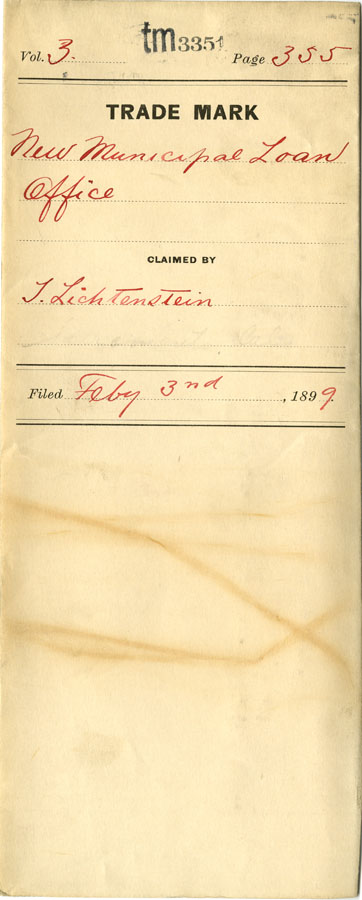 tm3351
Vol. 3. Page 355
TRADE MARK
New Municipal Loan
Office
CLAIMED BY
I. Lichtenstein
Filed Feby 3nd, 1899.